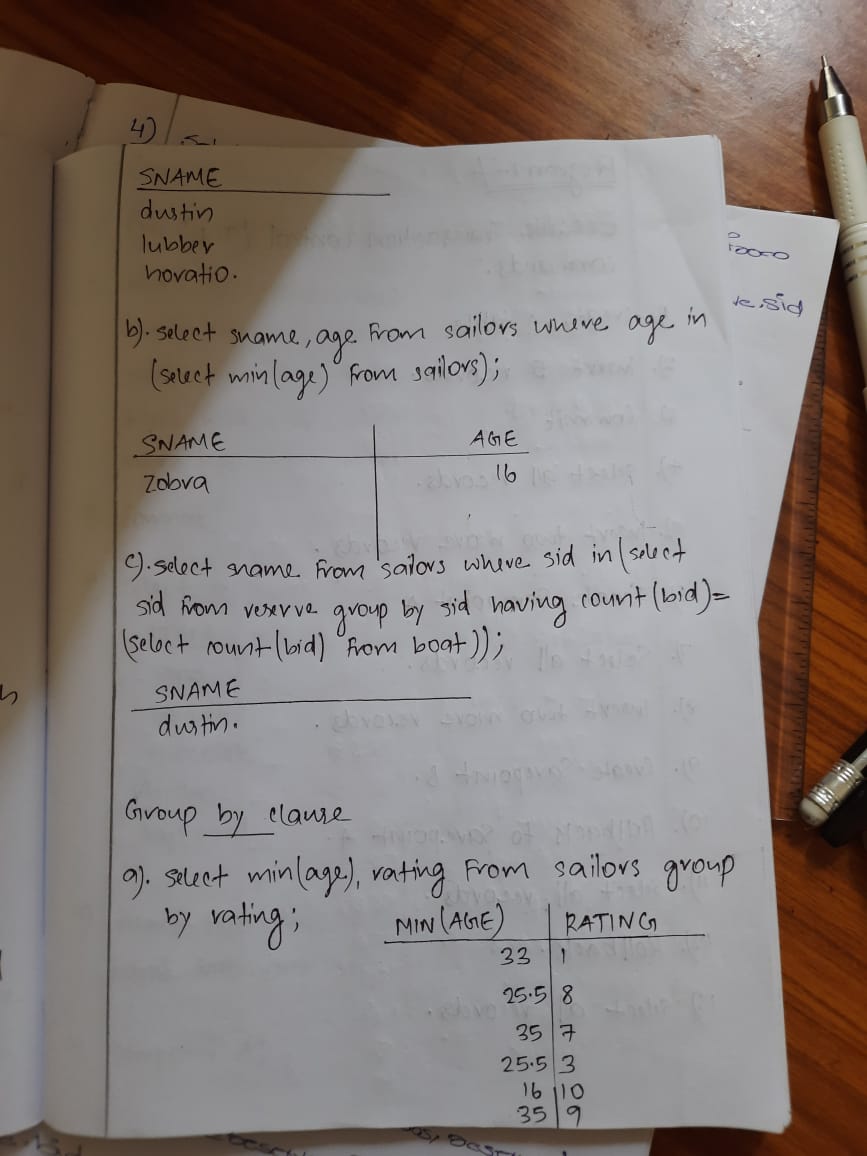 4)
SNAME
dustin
lubber
horatio.
b). select sname, age From sailors where age in
(select min(age) from sailors);
SNAME AGE
zobra 16
c). select sname From sailors where sid in (select
sid from reserve group by sid having count(bid)=
(select count(bid) from boat));
SNAME
dustin.
Group by clause
a). select min(age), rating From sailors group
by rating;
MIN(AGE) RATING
33 1
25.5 8
35 7
25.5 3
16 10
35 9
ve.sid